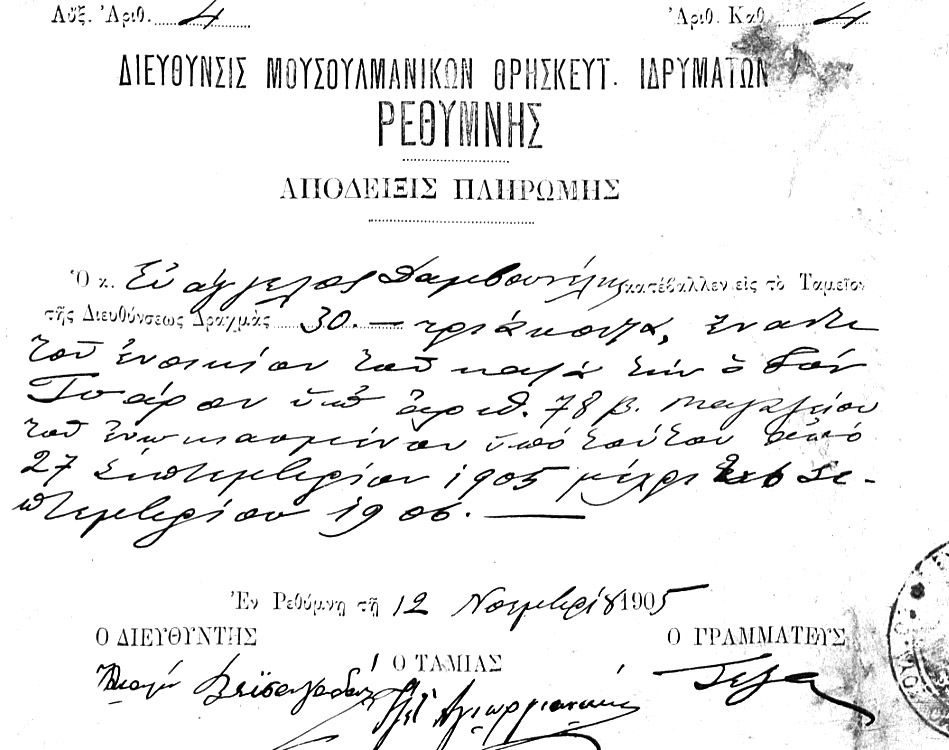 Αὔξ. Ἀριθ. 4 Ἀριθ. Καθ. 4
ΔΙΕΥΘΥΝΣΙΣ ΜΟΥΣΟΥΛΜΑΝΙΚΩΝ ΘΡΗΣΚΕΥΤ. ΙΔΡΥΜΑΤΩΝ
ΡΕΘΥΜΝΗΣ
ΑΠΟΔΕΙΞΙΣ ΠΛΗΡΩΜΗΣ
Ὁ κ. Εὐάγγελος κατέβαλλεν εἰς τὸ Ταμεῖον
τῆς Διευθύνσεως Δραχμὰς 30.— τριάκοντα, ἔναντι
τοῦ ἐνοικίου τοῦ κατὰ τὴν ὁδὸν
ὑπ' ἀριθ. 78 β. μαγαζείου
τοῦ ὑπὸ τούτου ἀπὸ
27 Σεπτεμβρίου 1905 μέχρι 26 Σε-
πτεμβρίου 1906.
Ἐν Ρεθύμνῃ τῇ 12 Νοεμβρίου 1905
Ο ΔΙΕΥΘΥΝΤΗΣ Ο ΓΡΑΜΜΑΤΕΥΣ
Ο ΤΑΜΙΑΣ